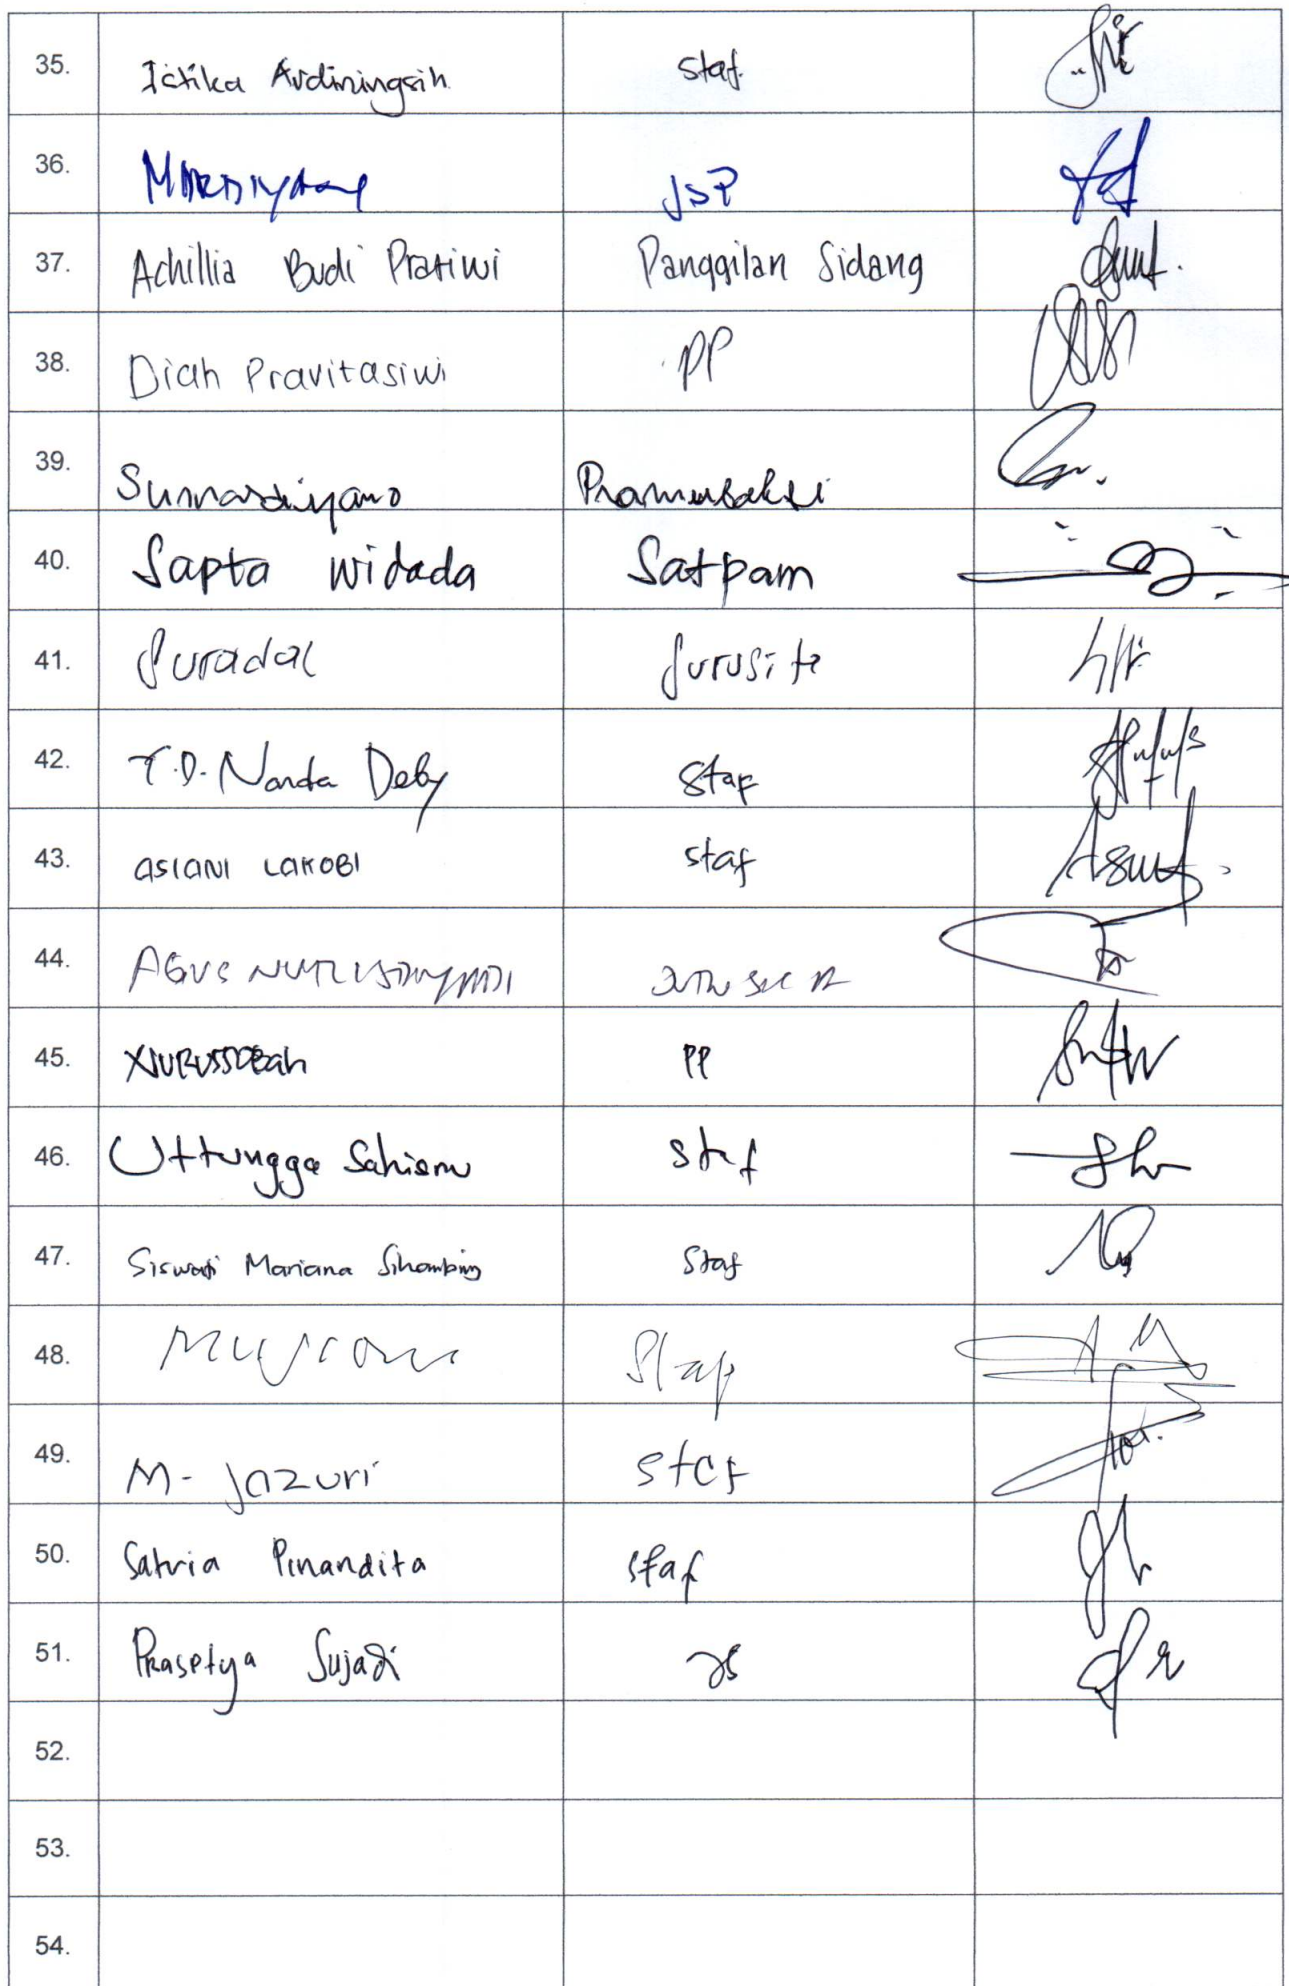 35. Ictika Ardiningsih staf
36. JSP
37. Achillia Budi Pratiwi Panggilan Sidang
38. Diah Pravitasiwi PP
39. Sumardiyono Pramubakti
40. Sapta Widada Satpam
41. Suradal Jurusita
42. T.D. Nanda Deby Staf
43. ASIANI LAKOBI staf
44. AGUS
45. NURUSSOBAH PP
46. Uttungga Sahisnu staf
47. Siswati Mariana Sihombing Staf
48. Staf
49. M. Jazuri staf
50. Satria Pinandita staf
51. Prasetya Sujadi JS
52.
53.
54.